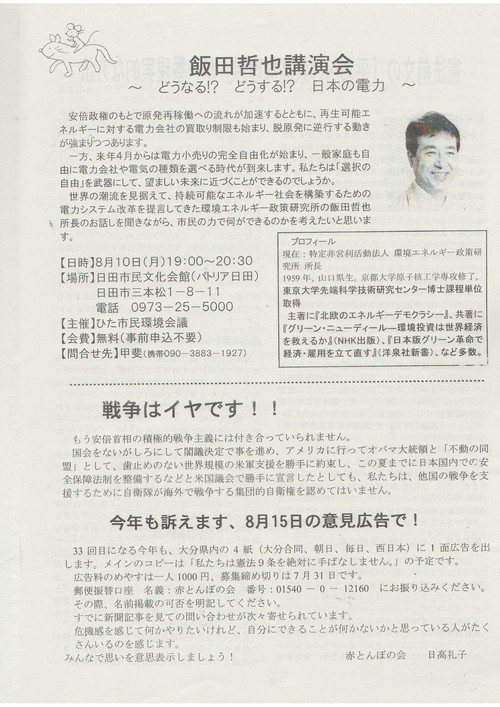 飯田哲也講演会
～ どうなる!? どうする!? 日本の電力 ～
安倍政権のもとで原発再稼働への流れが加速するとともに、再生可能エ
ネルギーに対する電力会社の買取り制限も始まり、脱原発に逆行する動き
が強まりつつあります。
一方、来年4月からは電力小売りの完全自由化が始まり、一般家庭も自
由に電力会社や電気の種類を選べる時代が到来します。私たちは「選択の
自由」を武器にして、望ましい未来に近づくことができるのでしょうか。
世界の潮流を見据えて、持続可能なエネルギー社会を構築するための
電力システム改革を提言してきた環境エネルギー政策研究所の飯田哲也
所長のお話しを聞きながら、市民の力で何ができるのかを考えたいと思いま
す。
【日時】8月10日(月)19:00～20:30
【場所】日田市民文化会館(パトリア日田)
日田市三本松1-8-11
電話 0973-25-5000
【主催】ひた市民環境会議
【会費】無料(事前申込不要)
【問合せ先】甲斐(携帯090-3883-1927)
プロフィール
現在:特定非営利活動法人 環境エネルギー政策研
究所 所長
1959年、山口県生。京都大学原子核工学専攻修了。
東京大学先端科学技術研究センター博士課程単位
取得
主著に『北欧のエネルギーデモクラシー』、共著に
『グリーン・ニューディール―環境投資は世界経済
を救えるか』(NHK出版)、『日本版グリーン革命で
経済・雇用を立て直す』(洋泉社新書)、など多数。
戦争はイヤです!!
もう安倍首相の積極的戦争主義には付き合っていられません。
国会をないがしろにして閣議決定で事を進め、アメリカに行ってオバマ大統領と「不動の同
盟」として、歯止めのない世界規模の米軍支援を勝手に約束し、この夏までに日本国内での安
全保障法制を整備するなどと米国議会で勝手に宣言したとしても、私たちは、他国の戦争を支
援するために自衛隊が海外で戦争する集団的自衛権を認めてはいません。
今年も訴えます、8月15日の意見広告で!
33回目になる今年も、大分県内の4紙(大分合同、朝日、毎日、西日本)に1面広告を出
します。メインのコピーは「私たちは憲法9条を絶対に手ばなしません。」の予定です。
広告料のめやすは一人1000円、募集締め切りは7月31日です。
郵便振替口座 名義:赤とんぼの会 番号:01540-0-12160 にお振り込みください。
その際、名前掲載の可否を明記してください。
すでに新聞記事を見ての問い合わせが次々寄せられています。
危機感を感じて何かやりたいけれど、自分にできることが何かないかと思っている人がたく
さんいるのを感じます。
みんなで思いを意思表示しましょう! 赤とんぼの会 日高礼子